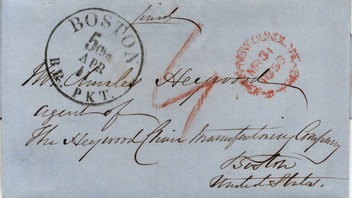 paid
BOSTON
5 cts
APR
BR. PKT.
NEWFOUNDLAND
Mr Charles Heywood
agent of
The Heywood Chair Manufacturing Company
Boston
United States.